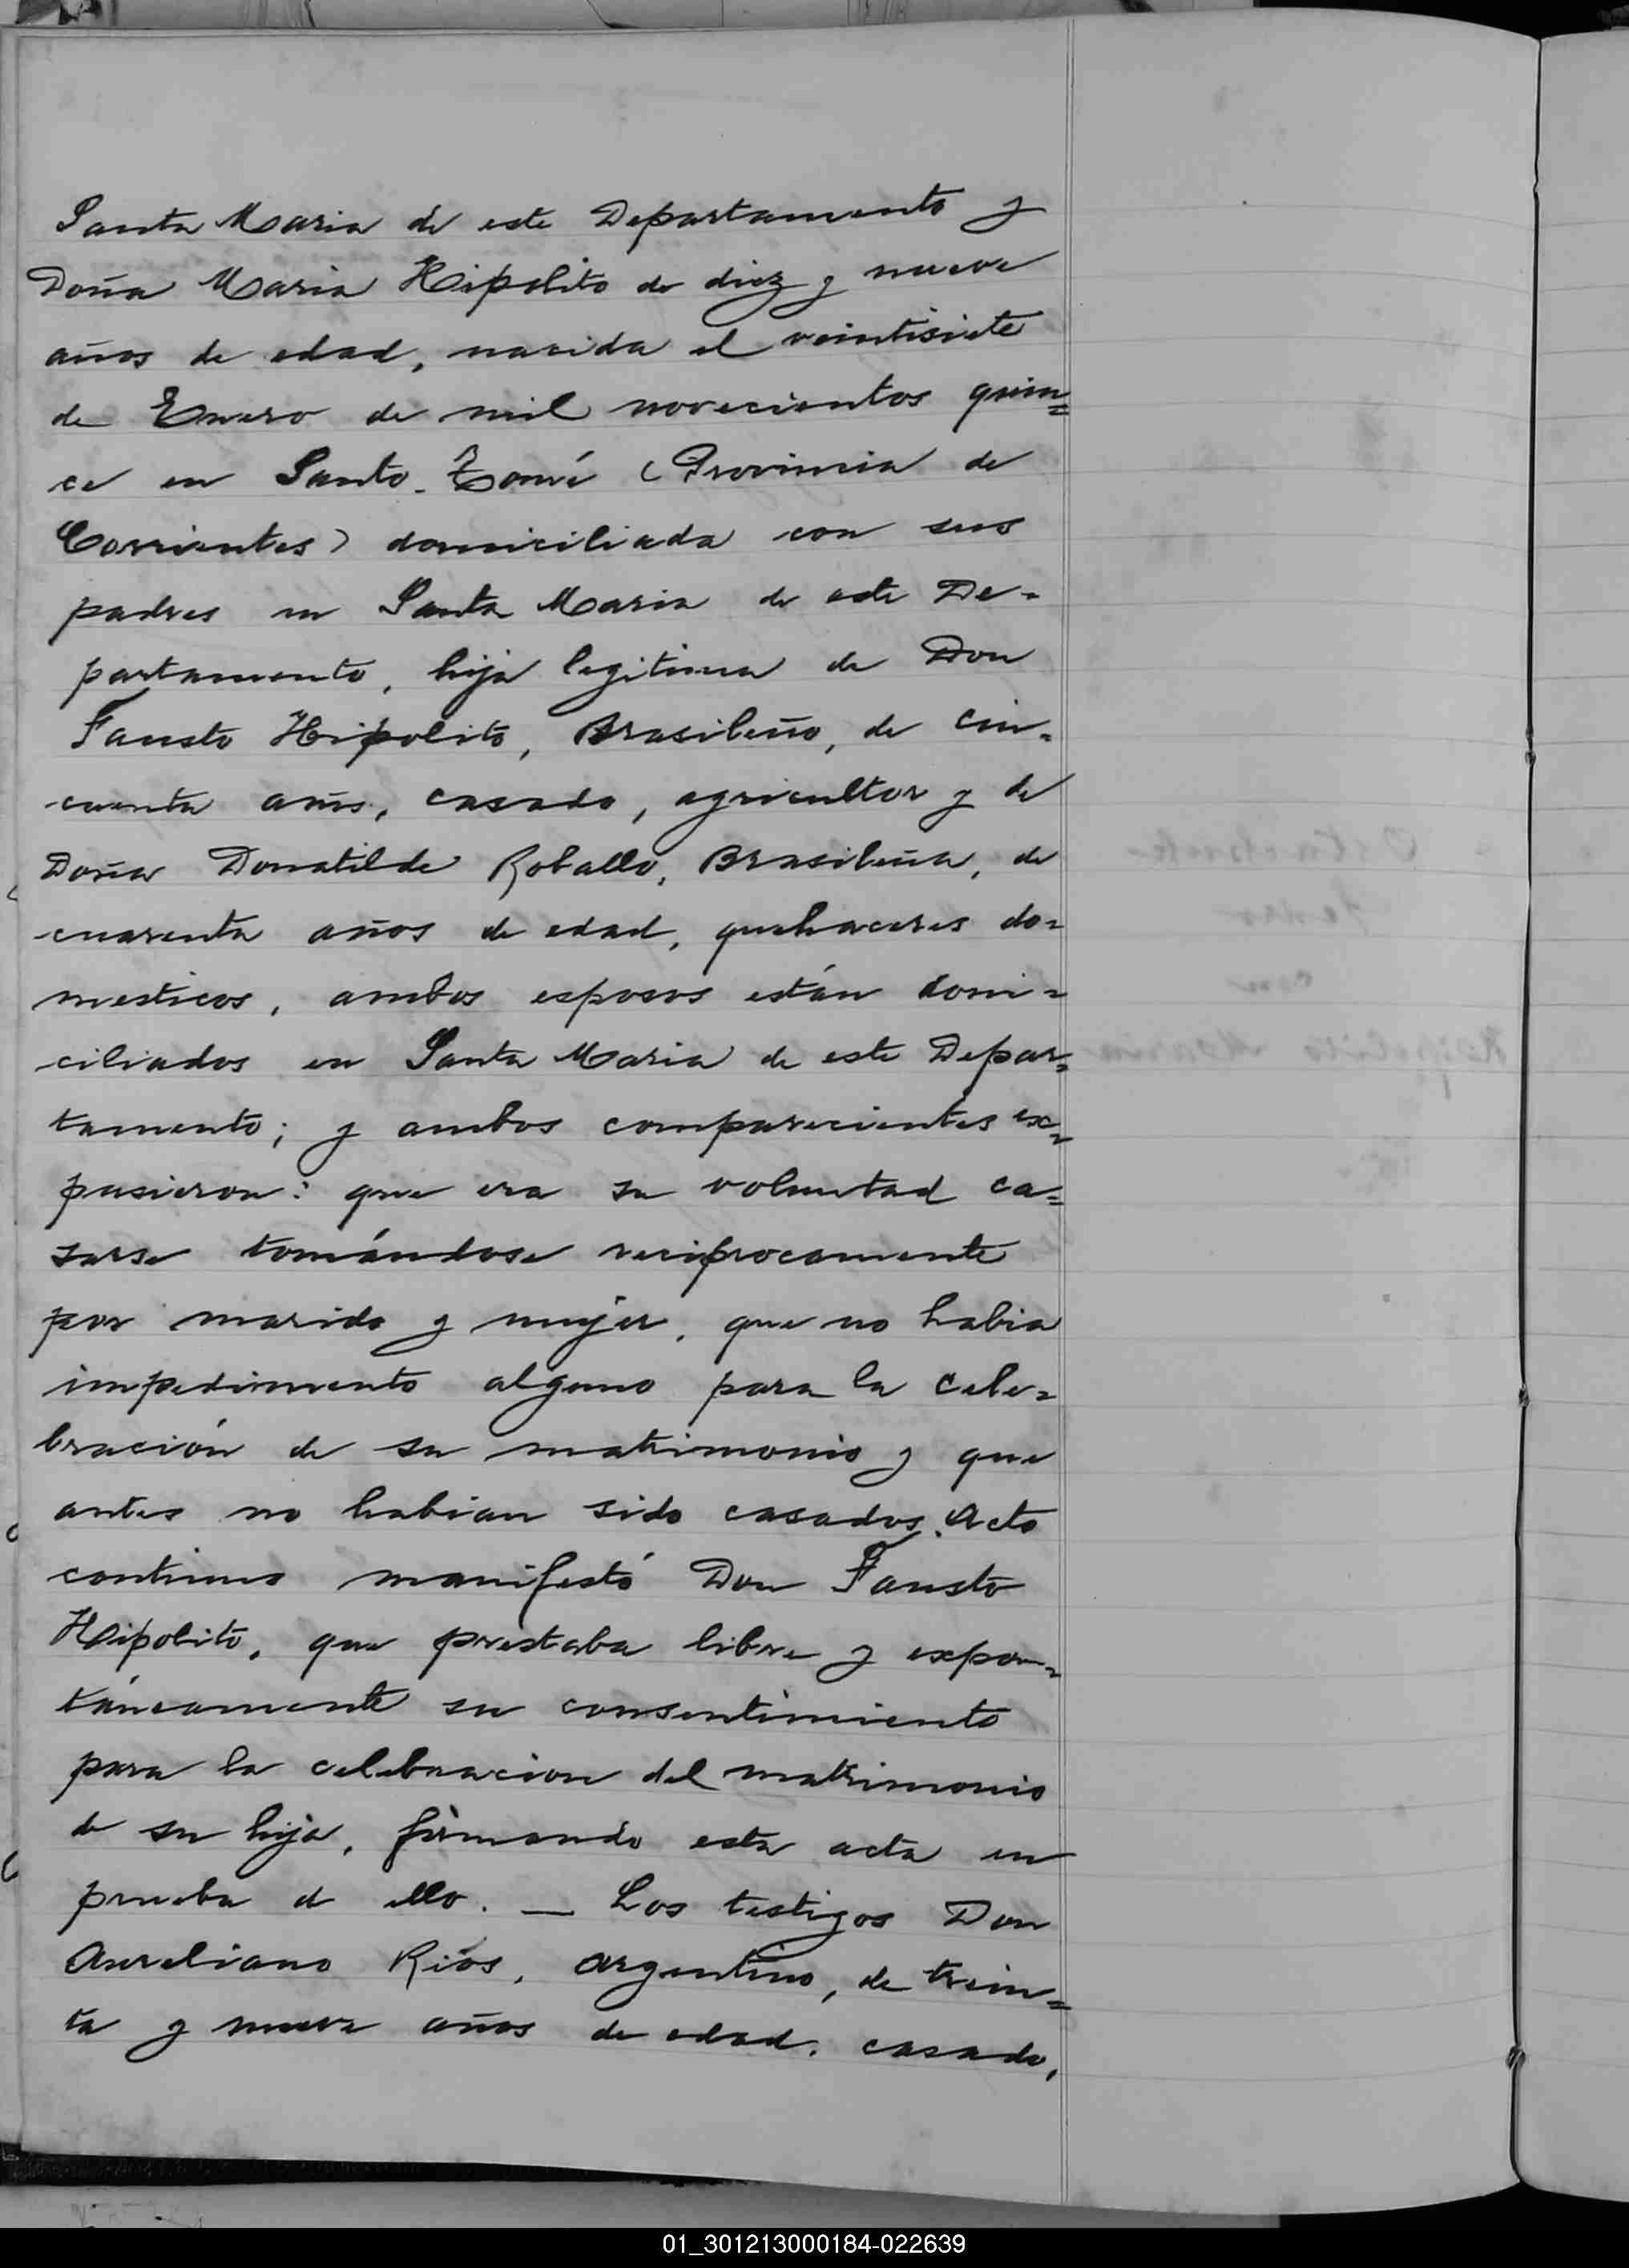 Santa Maria de este Departamento y
Doña Maria Hipolito de diez y nueve
años de edad, nacida el veintisiete
de Enero de mil novecientos quin=
ce en Santo-Tomé (Provincia de
Corrientes) domiciliada con sus
padres en Santa Maria de este De-
partamento, hija legitima de Don
Fausto Hipolito, Brasileño, de cin-
cuenta años, casado, agricultor y de
Doña Donatilde Roballo, Brasileña, de
cuarenta años de edad, quehaceres do=
mesticos, ambos esposos están domi=
ciliados en Santa Maria de este Depar=
tamento; y ambos comparecientes ex=
pusieron: que era su voluntad ca=
sarse tomándose reciprocamente
por marido y mujer, que no habia
impedimento alguno para la cele=
bración de su matrimonio y que
antes no habian sido casados. Acto
continuo manifestó Don Fausto
Hipolito, que prestaba libre y expon=
táneamente su consentimiento
para la celebracion del matrimonio
de su hija, firmando esta acta en
prueba de ello. — Los testigos Don
Aureliano Ríos, argentino, de trein=
ta y nueve años de edad, casado,
01_301213000184-022639